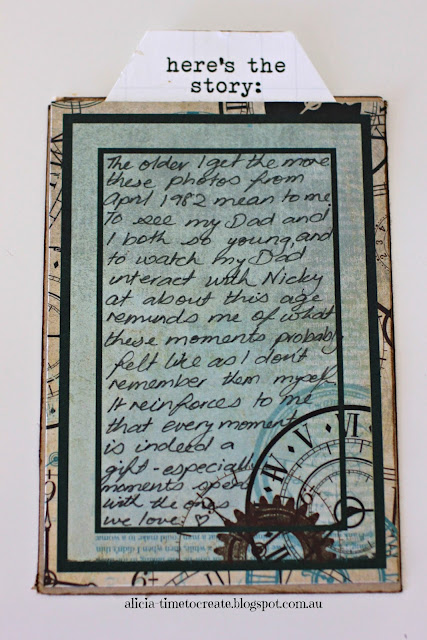 here's the
story:
The older I get the more
these photos from
April 1982 mean to me.
To see my Dad and
I both so young, and
to watch my Dad
interact with Nicky
at about this age
reminds me of what
these moments probably
felt like as I don't
remember them myself.
It reinforces to me
that every moment
is indeed a
gift - especially
moments spent
with the ones
we love. ♡
V VI
alicia-timetocreate.blogspot.com.au